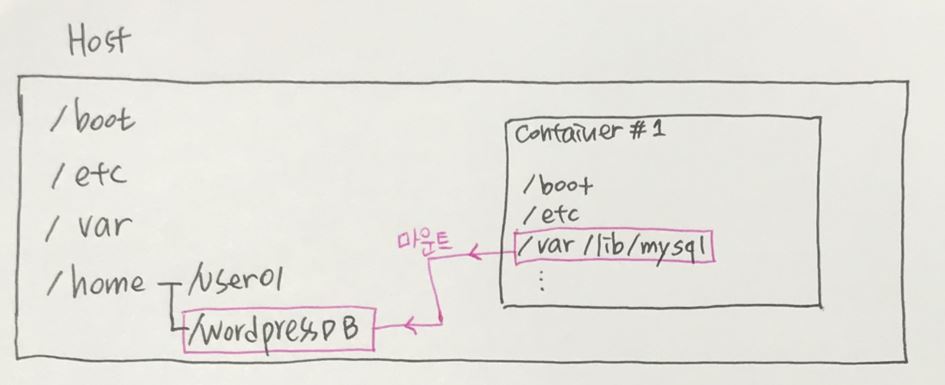 Host
/boot
/etc
/var
/home
/user01
/wordpressDB
마운트
Container #1
/boot
/etc
/var/lib/mysql
⋮